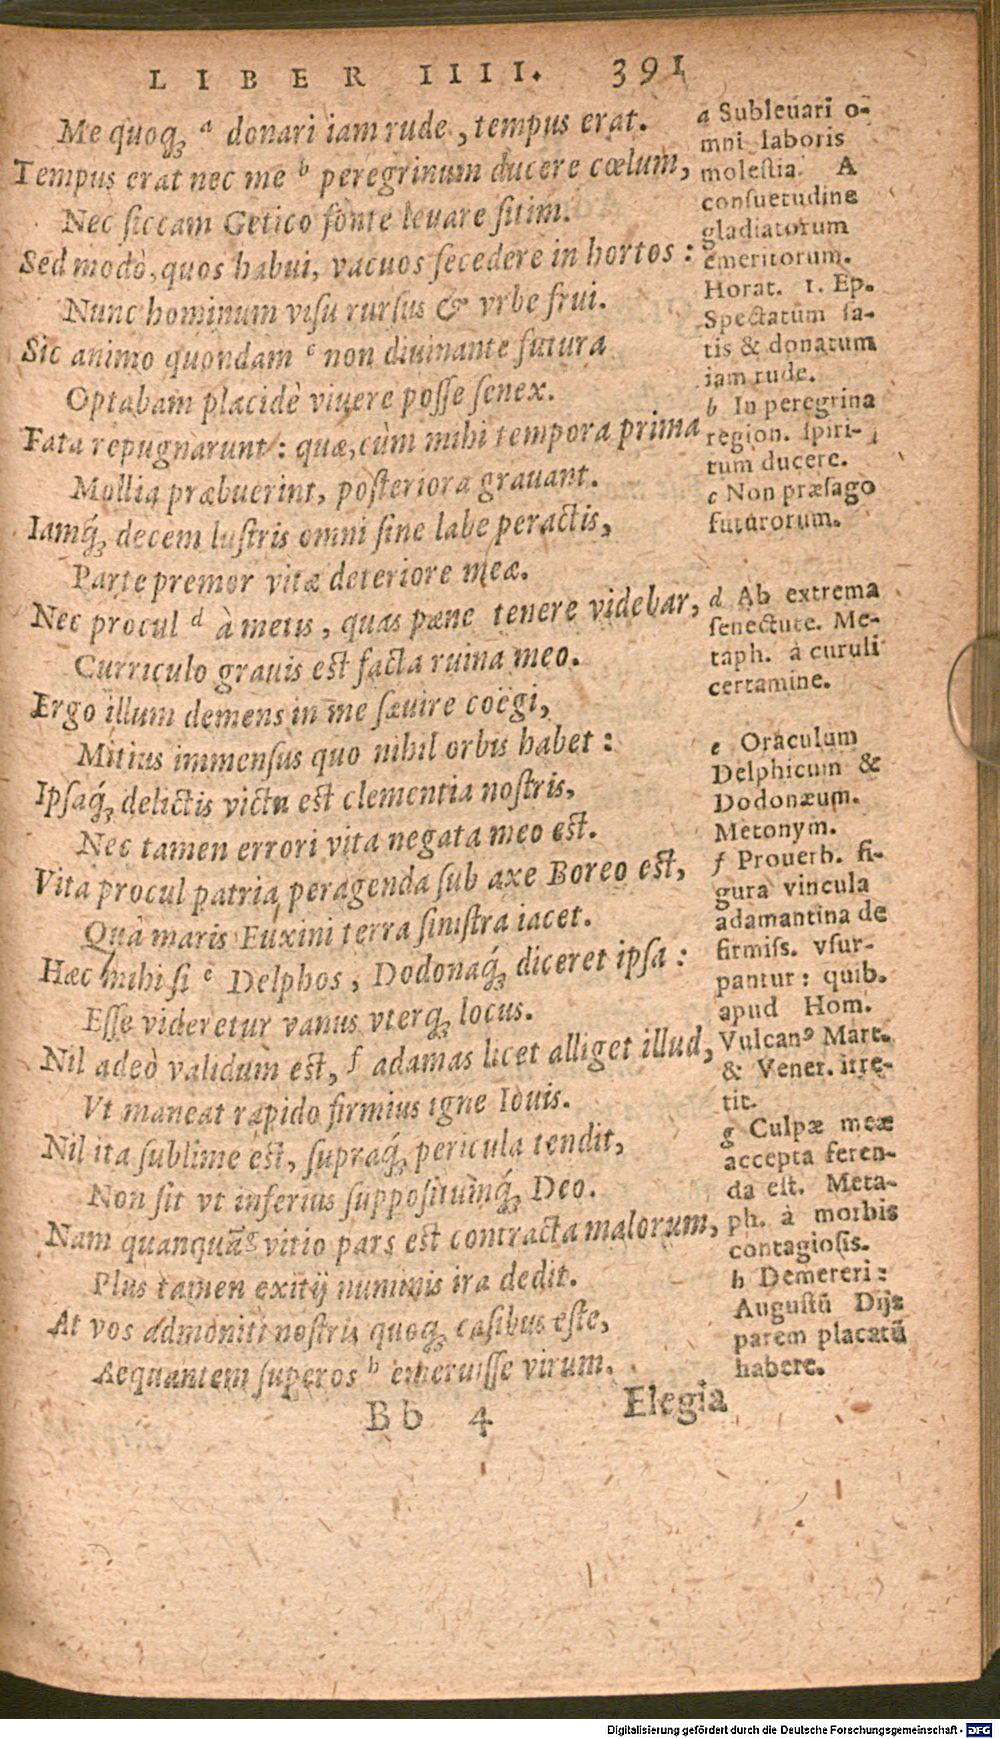 LIBER IIII. 391
Me quoq; ᵃ donari iam rude, tempus erat.
Tempus erat nec me ᵇ peregrinum ducere cœlum,
Nec siccam Getico fonte leuare sitim.
Sed modò, quos habui, vacuos secedere in hortos:
Nunc hominum visu rursus & vrbe frui.
Sic animo quondam ᶜ non diuinante futura
Optabam placidè viuere posse senex.
Fata repugnarunt: quæ, cùm mihi tempora prima
Mollia præbuerint, posteriora grauant.
Iamq́; decem lustris omni sine labe peractis,
Parte premor vitæ deteriore meæ.
Nec procul ᵈ à metis, quas pæne tenere videbar,
Curriculo grauis est facta ruina meo.
Ergo illum demens in me sæuire coëgi,
Mitius immensus quo nihil orbis habet:
Ipsaq́; delictis victa est clementia nostris,
Nec tamen errori vita negata meo est.
Vita procul patria peragenda sub axe Boreo est,
Quà maris Euxini terra sinistra iacet.
Hæc mihi si ᵉ Delphos, Dodonaq́; diceret ipsa:
Esse videretur vanus vterq; locus.
Nil adeò validum est, ᶠ adamas licet alliget illud,
Vt maneat rapido firmius igne Iouis.
Nil ita sublime est, supraq́; pericula tendit,
Non sit vt inferius suppositumq́; Deo.
Nam quanquã ᵍ vitio pars est contracta malorum,
Plus tamen exitij numinis ira dedit.
At vos admoniti nostris quoq; casibus este,
Aequantem superos ʰ emeruisse virum.
Bb 4 Elegia
a Subleuari o-
mni laboris
molestia. A
consuetudine
gladiatorum
emeritorum.
Horat. 1. Ep.
Spectatum sa-
tis & donatum
iam rude.
b In peregrina
region. spiri-
tum ducere.
c Non præsago
futurorum.
d Ab extrema
senectute. Me-
taph. à curuli
certamine.
e Oraculum
Delphicum &
Dodonæum.
Metonym.
f Prouerb. fi-
gura vincula
adamantina de
firmiss. vsur-
pantur: quib.
apud Hom.
Vulcanꝰ Mart.
& Vener. irre-
tit.
g Culpæ meæ
accepta feren-
da est. Meta-
ph. à morbis
contagiosis.
h Demereri:
Augustũ Dijs
parem placatũ
habere.
Digitalisierung gefördert durch die Deutsche Forschungsgemeinschaft - DFG